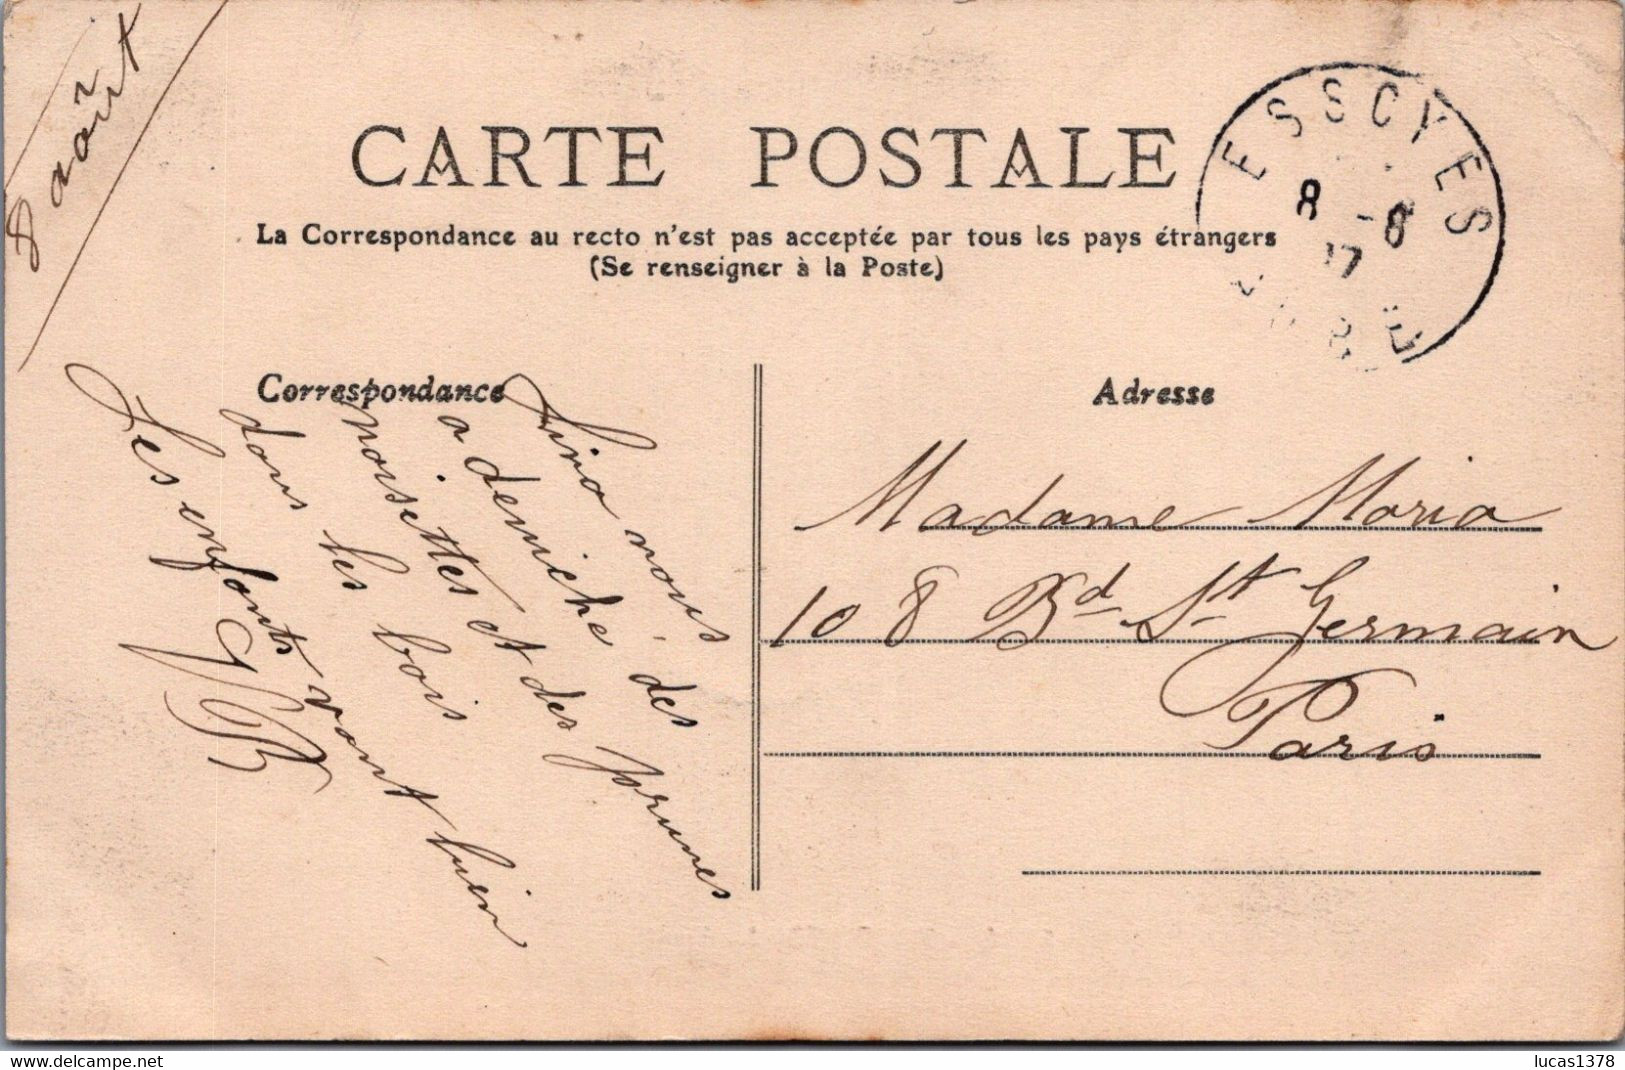 8 août
CARTE POSTALE
La Correspondance au recto n'est pas acceptée par tous les pays étrangers
(Se renseigner à la Poste)
ESSOYES
8 -8
17
Correspondance
Adresse
nous
a deniché des prunes
noisettes et des
dans les bois
Les enfants vont bien
Madame Maria
108 Bd St Germain
Paris
www.delcampe.net
lucas1378